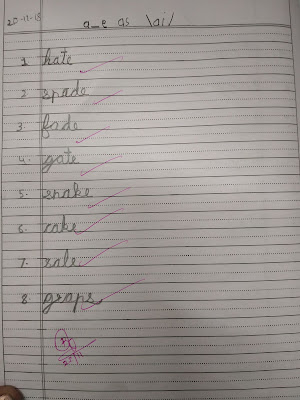 20-11-18
a_e as \ai/
1. hate
2. spade
3. fade
4. gate
5. snake
6. cake
7. sale
8. graps